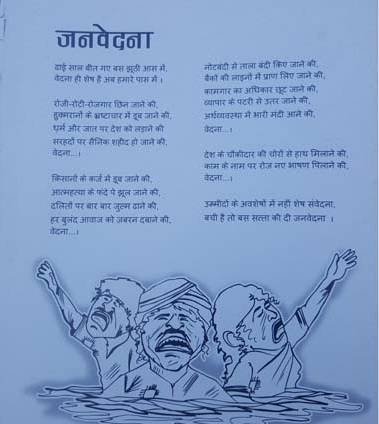 जनवेदना
ढाई साल बीत गए बस झूठी आस में,
वेदना ही शेष है अब हमारे पास में ।
रोजी-रोटी-रोजगार छिन जाने की,
हुक्मरानों के भ्रष्टाचार में डूब जाने की,
धर्म और जात पर देश को लड़ाने की
सरहदों पर सैनिक शहीद हो जाने की,
वेदना...।
किसानों के कर्ज में डूब जाने की,
आत्महत्या के फंदे पे झूल जाने की,
दलितों पर बार बार जुल्म ढाने की,
हर बुलंद आवाज को जबरन दबाने की,
वेदना...।
नोटबंदी से ताला बंदी किए जाने की,
बैंकों की लाइनों में प्राण लिए जाने की,
कामगार का अधिकार छूट जाने की,
व्यापार के पटरी से उतर जाने की,
अर्थव्यवस्था में भारी मंदी आने की,
वेदना...।
देश के चौकीदार की चोरों से हाथ मिलाने की,
काम के नाम पर रोज नए भाषण पिलाने की,
वेदना...।
उम्मीदों के अवशेषों में नहीं शेष संवेदना,
बची है तो बस सत्ता की दी जनवेदना ।